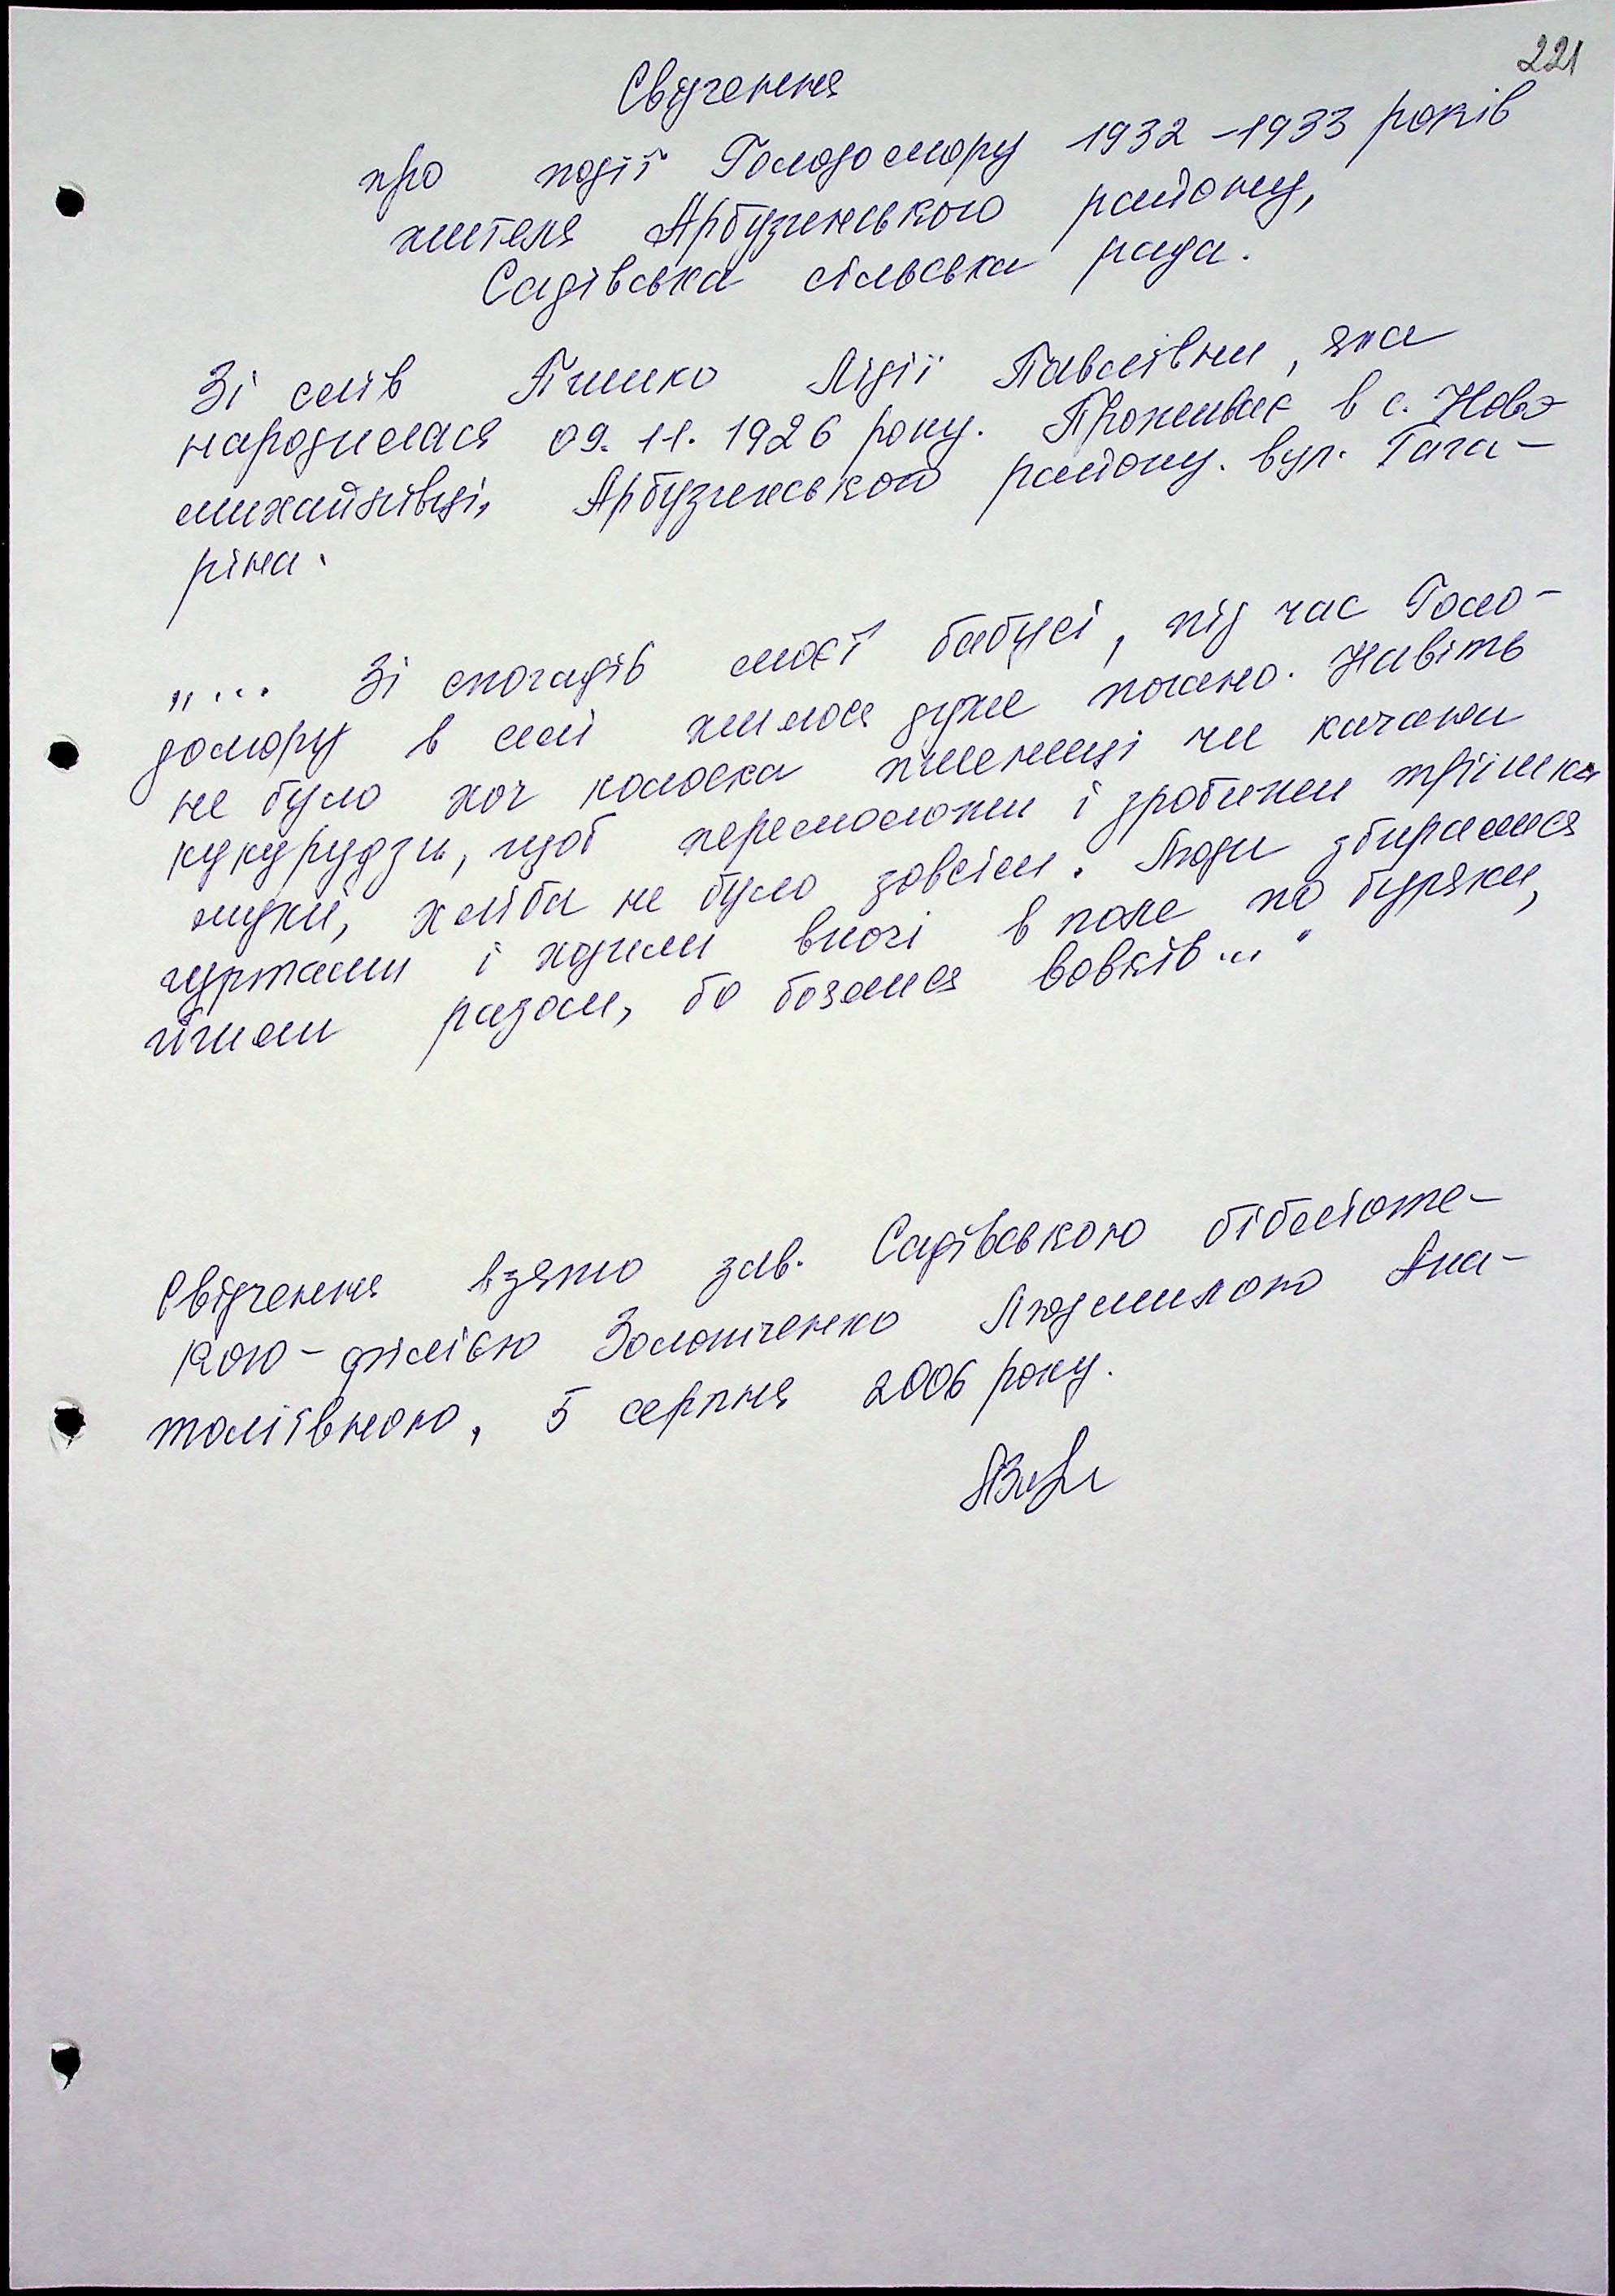 221
Свідчення
про події Голодомору 1932-1933 років
жителя Арбузинського району,
Садівська сільська рада.
Зі слів Лідії Павлівни, яка
народилася 09.11.1926 року. Проживає в с. Ново-
михайлівці, Арбузинського району. вул. Гага-
ріна.
„... Зі спогадів моєї бабусі, під час Голо-
домору в селі жилося дуже погано. Навіть
не було хоч колоска пшениці чи качани
кукурудзи, щоб перемололи і зробили трішки
муки, хліба не було зовсім. Люди збиралися
гуртами і ходили вночі в поле по буряки,
йшли разом, бо боялися вовків..."
Свідчення взято зав. Садівською бібліоте-
кою-філією Золотченко Людмилою Ана-
толіївною, 5 серпня 2006 року.